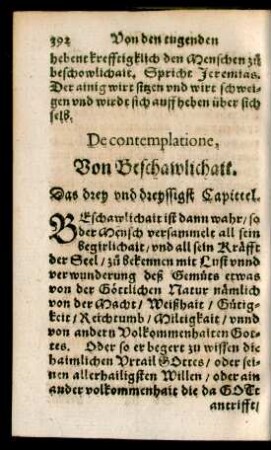 392 Von den tugenden
hebent krefftigklich den Menschen zů
beschowlichait. Spricht Jeremias.
Der ainig wirt sitzen vnd wirt schwei-
gen vnd wirdt sich auff heben über sich
selb.
De contemplatione,
Von Beschawlichait.
Das drey vnd dreyssigst Capittel.
BEschawlichait ist dann wahr / so
der Mensch versammelt all sein
begirlichait / vnd all sein Kräfft
der Seel / zů bekennen mit Lust vnnd
verwunderung deß Gemüts etwas
von der Göttlichen Natur nämlich
von der Macht / Weißhait / Gütig-
keit / Reichtumb / Miltigkait / vnnd
von andern Volkommenhaiten Got-
tes. Oder so er begert zu wissen die
haimlichen Vrtail GOttes / oder sei-
nen allerhailigsten Willen / oder ain
ander volkommenhait die da GOTT
antrifft /